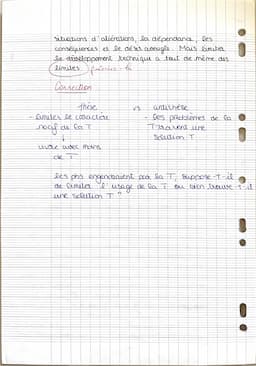 situations d'aliénations, la dépendance, les
conséquences et le désir aveugle. Mais limiter
le développement technique a tout de même des
limites. précise-la
Correction
thèse vs antithèse
- limiter le caractère - Des problèmes de la
nocif de la T T trouvent une
solution T.
↓
vivre avec moins
de T
Les pbs engendraient par la T, suppose-t-il
de limiter l'usage de la T ou bien trouve-t-il
une solution T ?